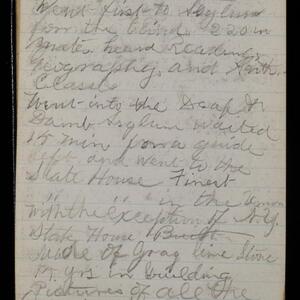 Went first to Asylum
for the blind. 220 in
mates, heard Reading,
Geography, and Arith.
Classes
Went into the Deaf &
Dumb Asylum waited
15 min for a guide
left and went to the
State House Finest
" " " in the Union
with the exception of N.Y.
State House Built
Made of Gray lime Stone
14 yrs in building
Pictures of all the